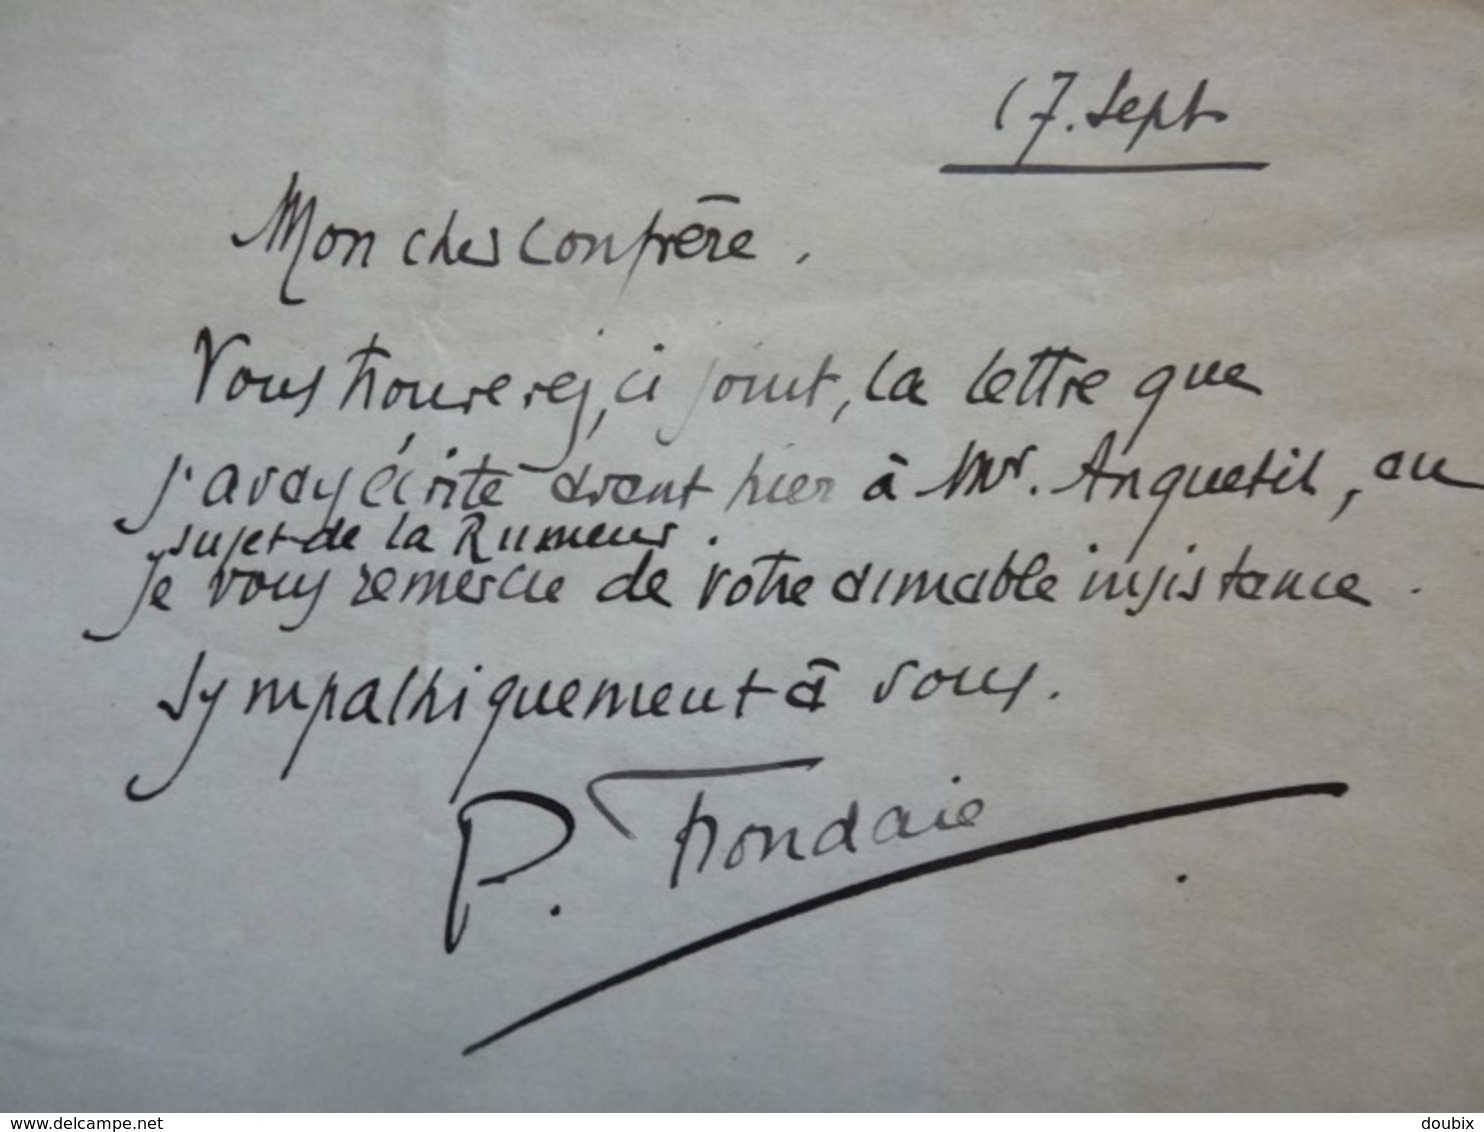 17. Sept
Mon cher confrère.
Vous trouverez, ci joint, la lettre que
j'avais écrite avant hier à Mr. Anquetil, au
sujet de la Rumeur.
Je vous remercie de votre aimable insistance.
Sympathiquement à vous.
P. Frondaie
delcampe.net
doubix